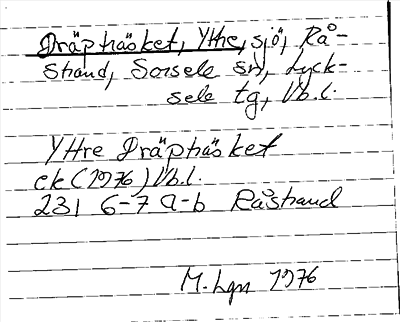 Dräphäsket, Yttre, sjö, Rå-
strand, Sorsele sn, Lyck-
sele tg, Vb.l.
Yttre Dräphäsket
ek (1976) Vb.l.
231 6-7 a-b Råstrand
M. Lgn 1976